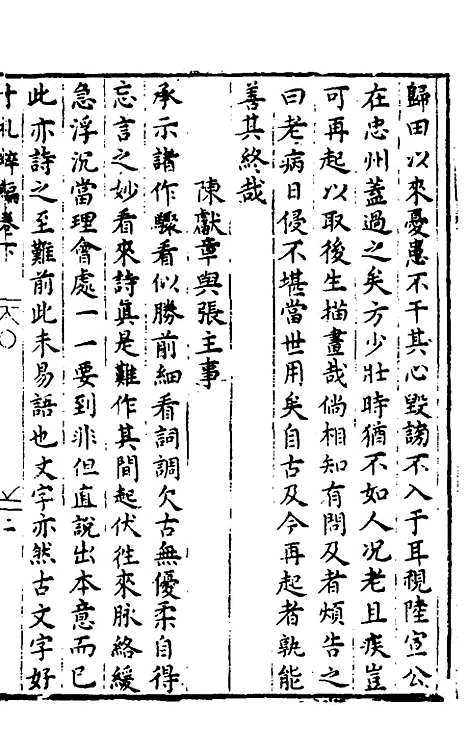 歸田以來憂患不干其心毀謗不入于耳視陸宣公
在忠州蓋過之矣方少壯時猶不如人况老且疾豈
可再起以取後生描畫哉倘相知有問及者煩告之
曰老病日侵不堪當世用矣自古及今再起者孰能
善其終哉
陳獻章與張主事
承示諸作驟看似勝前細看詞調欠古無優柔自得
忘言之妙看來詩真是難作其間起伏徃來脉絡緩
急浮沉當理會處一一要到非但直說出本意而已
此亦詩之至難前此未易語也文字亦然古文字好
卷下
二